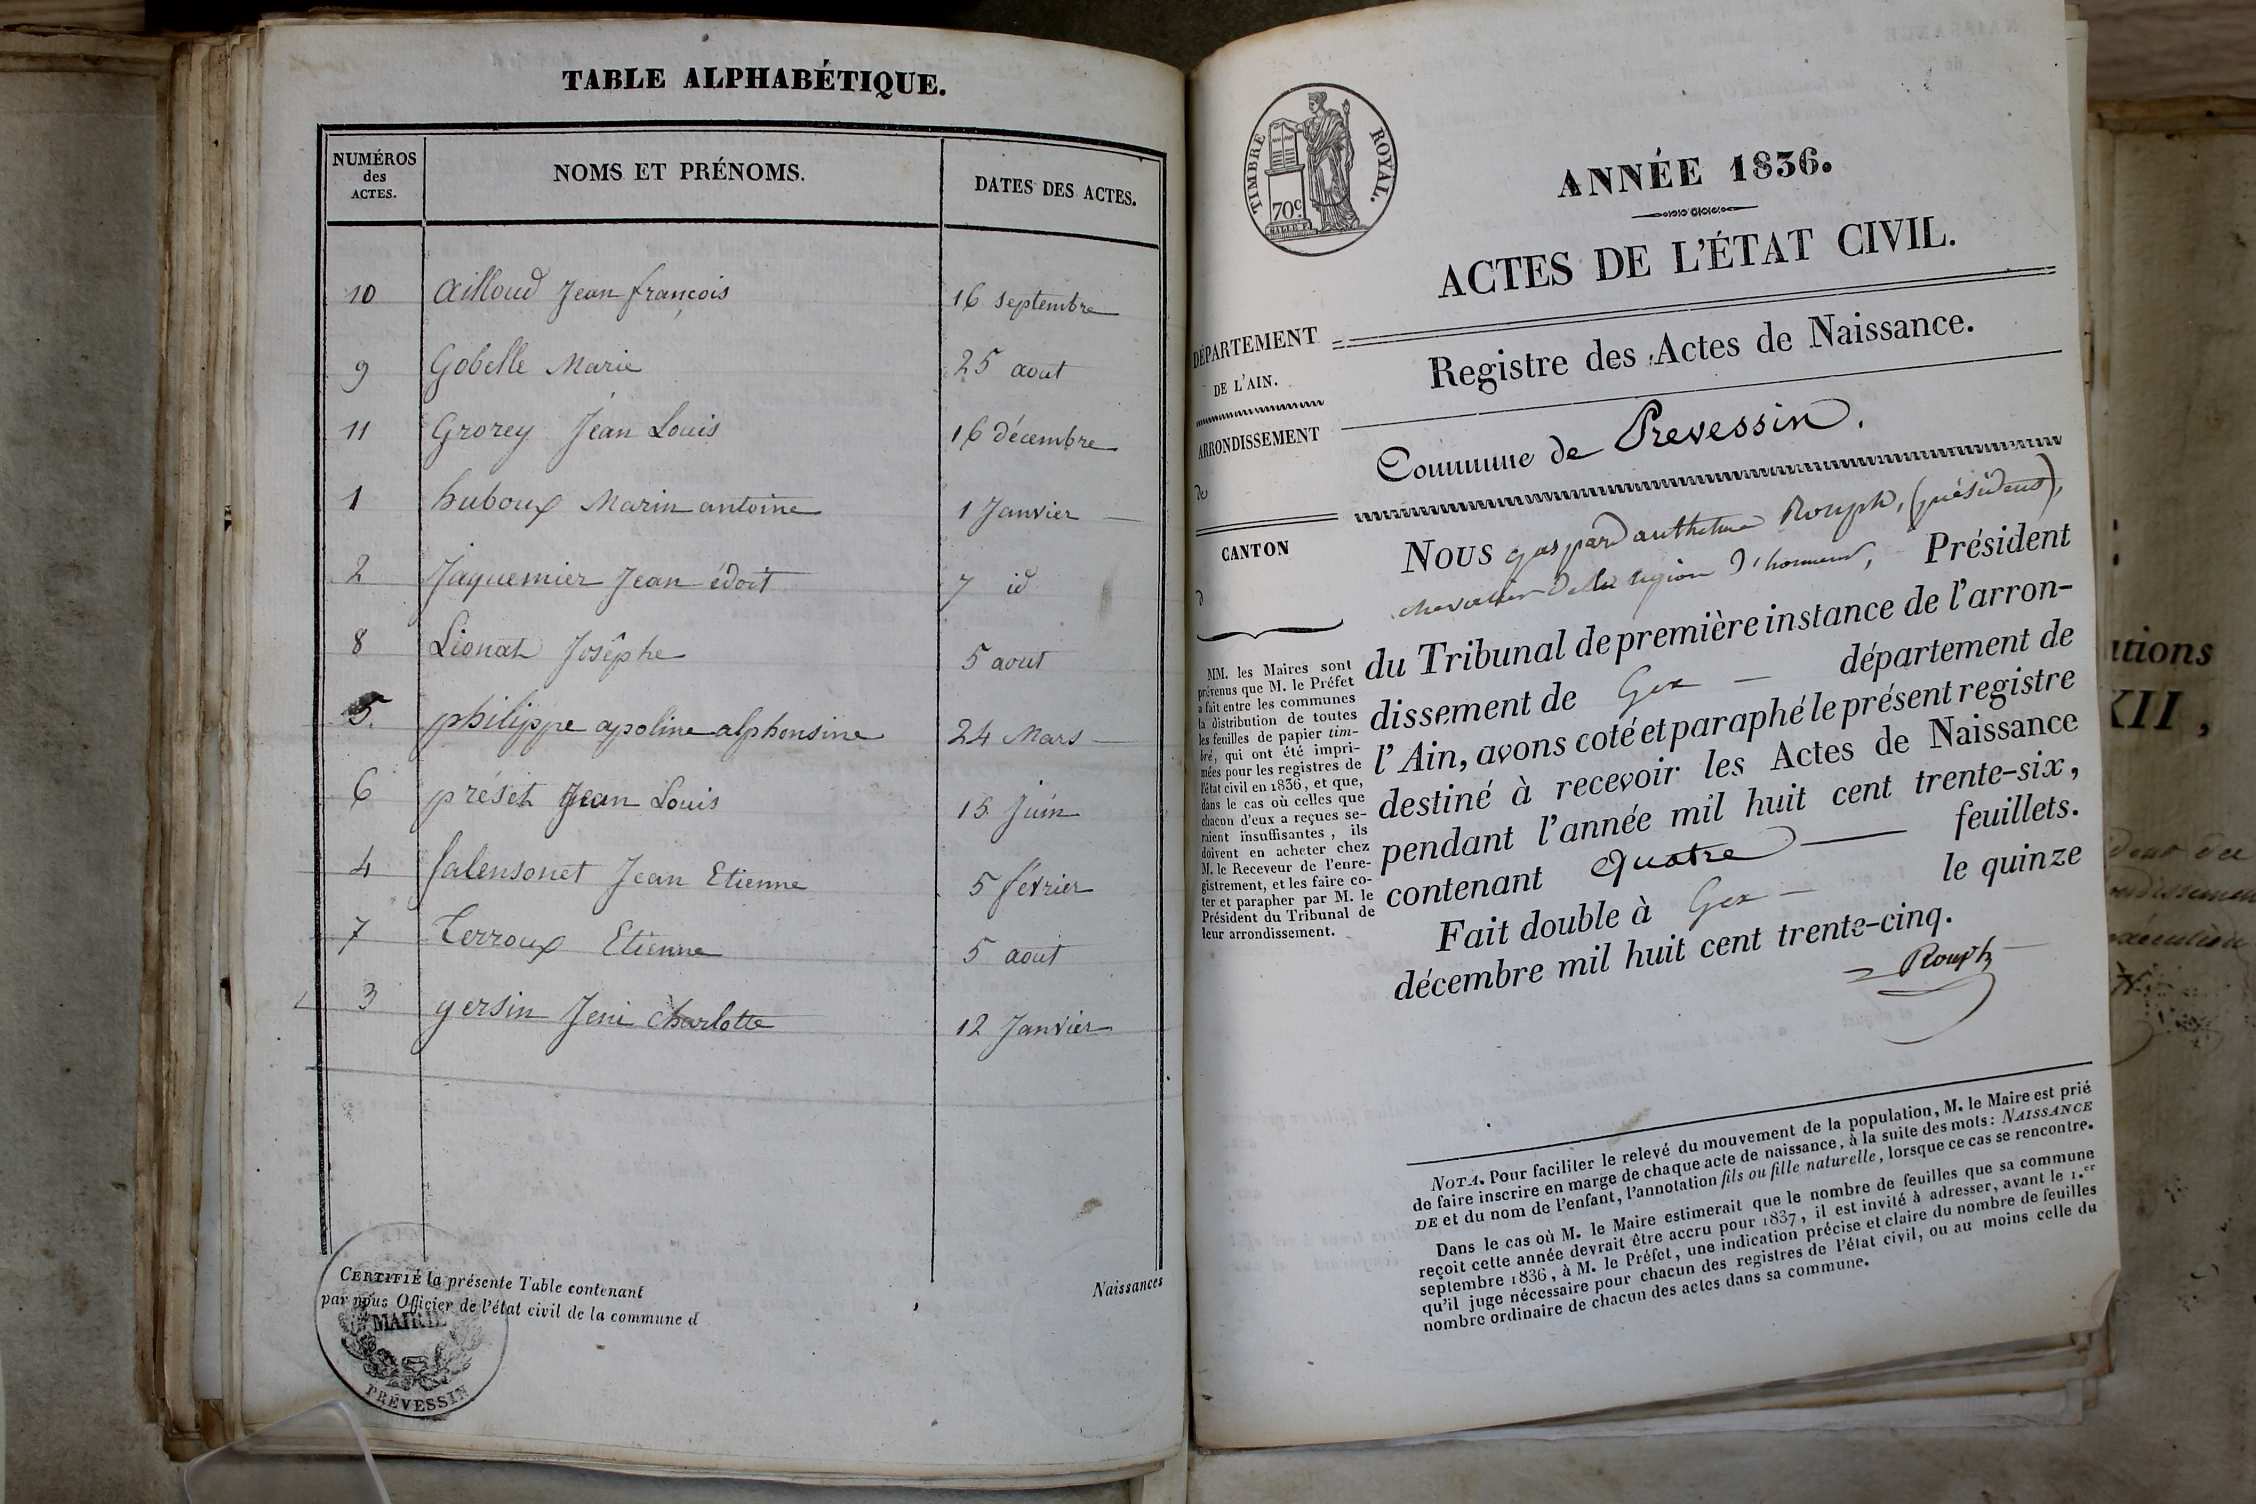 TABLE ALPHABÉTIQUE.
NUMÉROS des ACTES. NOMS ET PRÉNOMS. DATES DES ACTES.
10 ailloud Jean françois 16 septembre
9 Gobelle Marie 25 aout
11 Grorey Jean Louis 16 décembre
1 huboux Marin antoine 1 Janvier
2 Jaquemier Jean édoit 7 id
8 Lionat Josêphe 5 aout
5. philippe apoline alphonsine 24 Mars
6 préset Jean Louis 15 Juin
4 salensonet Jean Etienne 5 fevrier
7 Terroux Etienne 5 aout
3 yersin Jeni Charlotte 12 Janvier
CERTIFIÉ la présente Table contenant
par nous Officier de l'état civil de la commune d
Naissances
MAIRIE
PRÉVESSIN
TIMBRE ROYAL.
70c.
ANNÉE 1836.
ACTES DE L'ÉTAT CIVIL.
DÉPARTEMENT
DE L'AIN.
ARRONDISSEMENT
de
CANTON
d
MM. les Maires sont
prévenus que M. le Préfet
a fait entre les communes
la distribution de toutes
les feuilles de papier tim-
bré, qui ont été impri-
mées pour les registres de
l'état civil en 1836, et que,
dans le cas où celles que
chacun d'eux a reçues se-
raient insuffisantes, ils
doivent en acheter chez
M. le Receveur de l'enre-
gistrement, et les faire co-
ter et parapher par M. le
Président du Tribunal de
leur arrondissement.
Registre des Actes de Naissance.
Commune de Prevessin.
Nous gaspard anthelme Rouph, (président),
chevalier de la légion d'honneur, Président
du Tribunal de première instance de l'arron-
dissement de Gex département de
l'Ain, avons coté et paraphé le présent registre
destiné à recevoir les Actes de Naissance
pendant l'année mil huit cent trente-six,
contenant quatre feuillets.
Fait double à Gex le quinze
décembre mil huit cent trente-cinq.
Rouph
NOTA. Pour faciliter le relevé du mouvement de la population, M. le Maire est prié
de faire inscrire en marge de chaque acte de naissance, à la suite des mots: NAISSANCE
DE et du nom de l'enfant, l'annotation fils ou fille naturelle, lorsque ce cas se rencontre.
Dans le cas où M. le Maire estimerait que le nombre de feuilles que sa commune
reçoit cette année devrait être accru pour 1837, il est invité à adresser, avant le 1.er
septembre 1836, à M. le Préfet, une indication précise et claire du nombre de feuilles
qu'il juge nécessaire pour chacun des registres de l'état civil, ou au moins celle du
nombre ordinaire de chacun des actes dans sa commune.
XII,